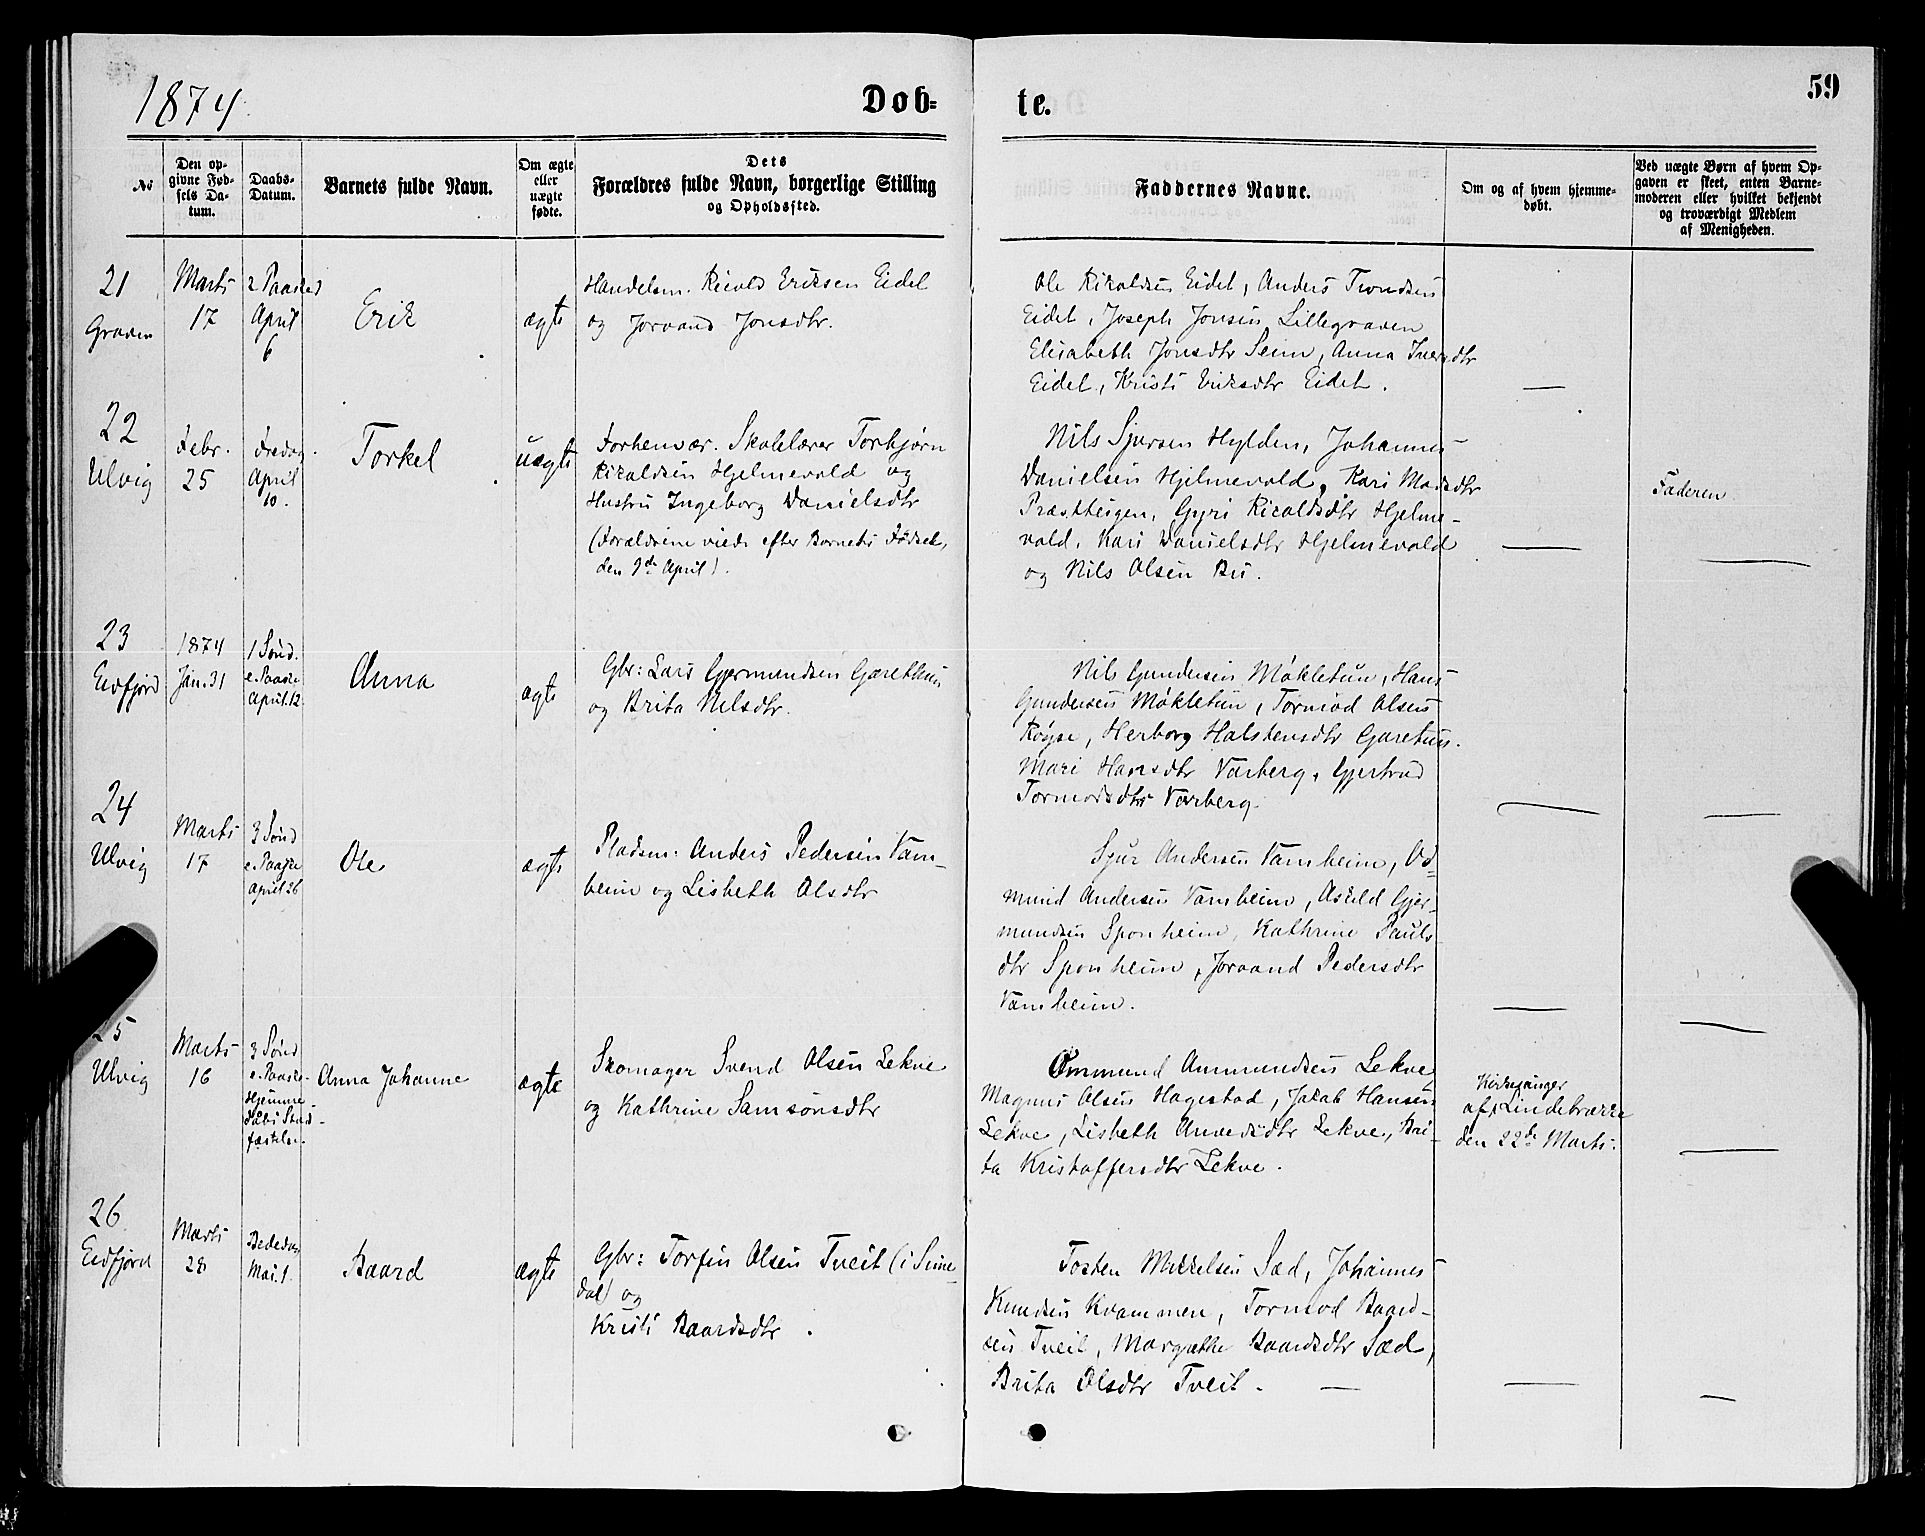 1874.
Døb- te.
59
No
Den op-
givne Fød-
sels Da-
tum.
Daabs-
Datum.
Barnets fulde Navn.
Om ægte
eller
uægte
fødte.
Dets
Forældres fulde Navn, borgerlige Stilling
og Opholdssted.
Faddernes Navne.
Om og af hvem hjemme-
døbt.
Ved uægte Børn af hvem Op-
gaven er skeet, enten Barne-
moderen eller hvilket bekjendt
og troværdigt Medlem
af Menigheden.
21
Graven
Marts
17
2 Paasked
April
6
Erik
ægte
Handelsm. Ricold Eriksen Eidet
og Jorand Jonsdtr.
Ole Rikoldsen Eidet, Anders Trondsen
Eidet, Joseph Jonsen Lillegraven
Elisabeth Jonsdtr Seim, Anna Iversdtr
Eidet, Kristi Eriksdtr Eidet.
22
Ulvig
Febr.
25
Fredag
April
10.
Torkel
uægte
Forhenvær. Skolelærer Torbjørn
Rikoldsen Hjelmevold og
Hustru Ingeborg Danielsdtr
(Forældrene viede efter Barnets Fødsel,
den 9de April).
Nils Sjursen Hylden, Johannes
Danielsen Hjelmevold, Kari Madsdtr
Præstteigen, Gyri Ricoldsdtr Hjelme-
vold, Kari Danielsdtr Hjelmevold
og Nils Olsen Bu.
Faderen
23
Eidfjord
1874
Jan. 31
1 Sønd.
e. Paaske
April. 12.
Anna
ægte
Gbr: Lars Gjermundsen Garethun
og Brita Nilsdtr.
Nils Gundersen Møkletun, Hans
Gundersen Møkletun, Tormod Olsen
Røyse, Herborg Halstensdtr Garetun.
Mari Hansdtr Varberg, Gjertrud
Tormodsdtr Varberg.
24
Ulvig
Marts
17
3 Sønd
e. Paaske
April 26
Ole
ægte
Pladsm: Anders Pedersen Vam-
heim og Lisbeth Olsdtr
Sjur Andersen Vamheim, Od-
mund Andersen Vamheim, Askild Gjer-
mundsen Sponheim, Kathrine Pauls-
dtr Sponheim, Joraand Pedersdtr
Vamheim.
25
Ulvig
Marts
16
3 Sønd
e. Paaske
Hjemme
Daabs Stad-
fæstelse.
Anna Johanne
ægte
Skomager Svend Olsen Lekve
og Kathrine Samsonsdtr
Ommund Ammundsen Lekve
Magnus Olsen Hagestad, Jakob Hansen
Lekve, Lisbeth Amundsdtr Lekve, Bri-
ta Kristoffersdtr Lekve.
Kirkesanger
af Lindebrække
den 22de Marts.
26
Eidfjord
Marts
28
Bededag
Mai. 1.
Baard
ægte
Gbr: Torfin Olsen Tveit (i Sime-
dal) og
Kristi Baardsdtr.
Tosten Mikkelsen Sæd, Johannes
Knudsen Kvammen, Tormod Baard-
sen Tveit, Margrethe Baardsdtr Sæd,
Brita Olsdtr Tveit.